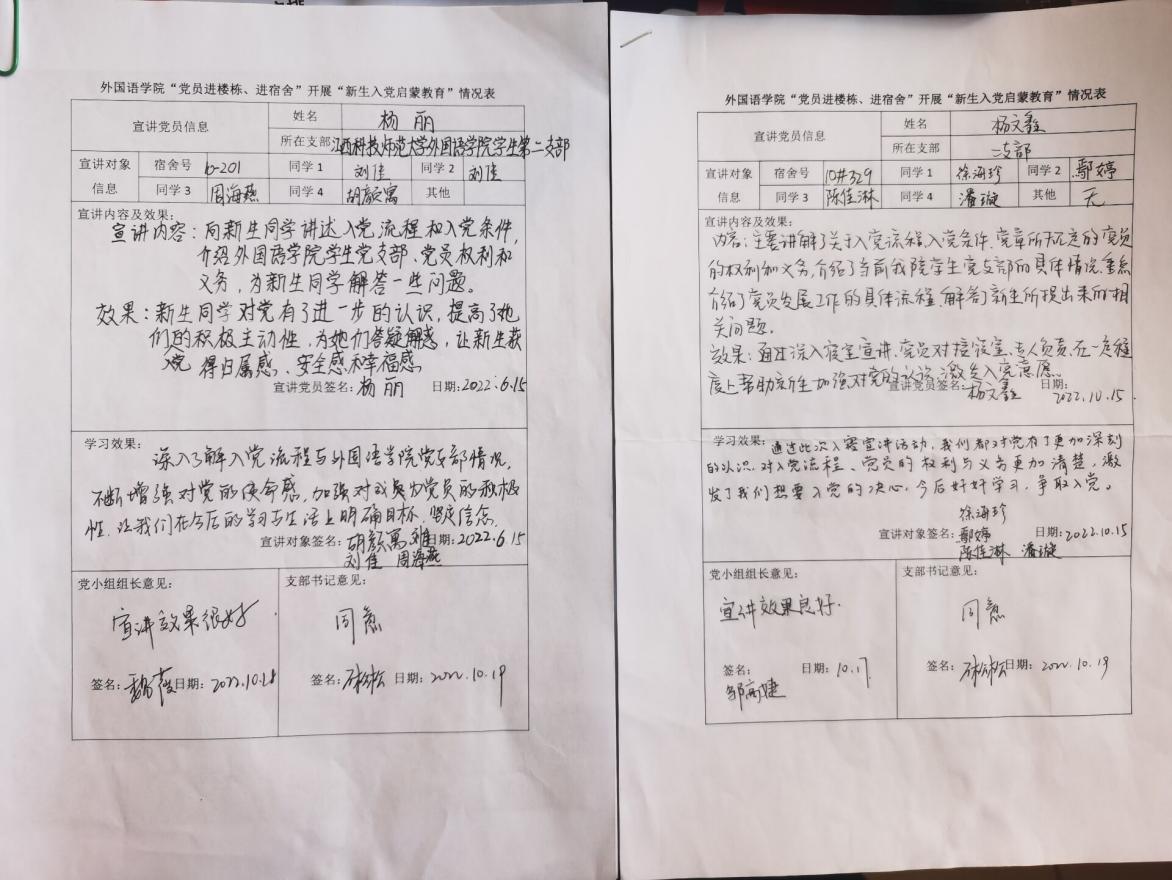 外国语学院“党员进楼栋、进宿舍”开展“新生入党启蒙教育”情况表
宣讲党员信息
姓名
杨丽
所在支部
江西科技师范大学外国语学院学生第二支部
宣讲对象信息
宿舍号
10-201
同学1
刘佳
同学2
刘佳
同学3
周海燕
同学4
胡颜寓
其他
宣讲内容及效果:
宣讲内容:向新生同学讲述入党流程和入党条件,
介绍外国语学院学生党支部、党员权利和
义务,为新生同学解答一些问题。
效果:新生同学对党有了进一步的认识,提高了她
们的积极主动性,为她们答疑解惑,让新生获
得归属感、安全感和幸福感
入党
宣讲党员签名:杨丽 日期:2022.6.15
学习效果:
深入了解入党流程与外国语学院党支部情况,
不断增强对党的使命感,加强对成为党员的积极
性,让我们在今后的学习与生活上明确目标,坚定信念
宣讲对象签名:胡颜寓 刘佳 日期:2022.6.15
刘佳 周海燕
党小组组长意见:
宣讲效果很好
签名: 日期:2022.10.18
支部书记意见:
同意
签名: 日期:2022.10.19
外国语学院“党员进楼栋、进宿舍”开展“新生入党启蒙教育”情况表
宣讲党员信息
姓名
杨文鑫
所在支部
二支部
宣讲对象信息
宿舍号
10#329
同学1
徐海珍
同学2
鄢婷
同学3
陈佳淋
同学4
潘璇
其他
无
宣讲内容及效果:
内容:主要讲解了关于入党流程、入党条件、党章所规定的党员
的权利和义务,介绍了当前我院学生党支部的具体情况,重点
介绍了党员发展工作的具体流程,解答了新生所提出来的相
关问题。
效果:通过深入寝室宣讲,党员对接寝室、专人负责,在一定程
度上帮助新生加强对党的认识,激发入党意愿。
宣讲党员签名:杨文鑫 日期:2022.10.15.
学习效果:通过此次入寝宣讲活动,我们都对党有了更加深刻
的认识,对入党流程、党员的权利与义务更加清楚,激
发了我们想要入党的决心,今后好好学习,争取入党。
徐海珍
宣讲对象签名:鄢婷 日期:2022.10.15
陈佳淋 潘璇
党小组组长意见:
宣讲效果良好.
签名: 日期:10.17
邹高婕
支部书记意见:
同意
签名: 日期:2022.10.19